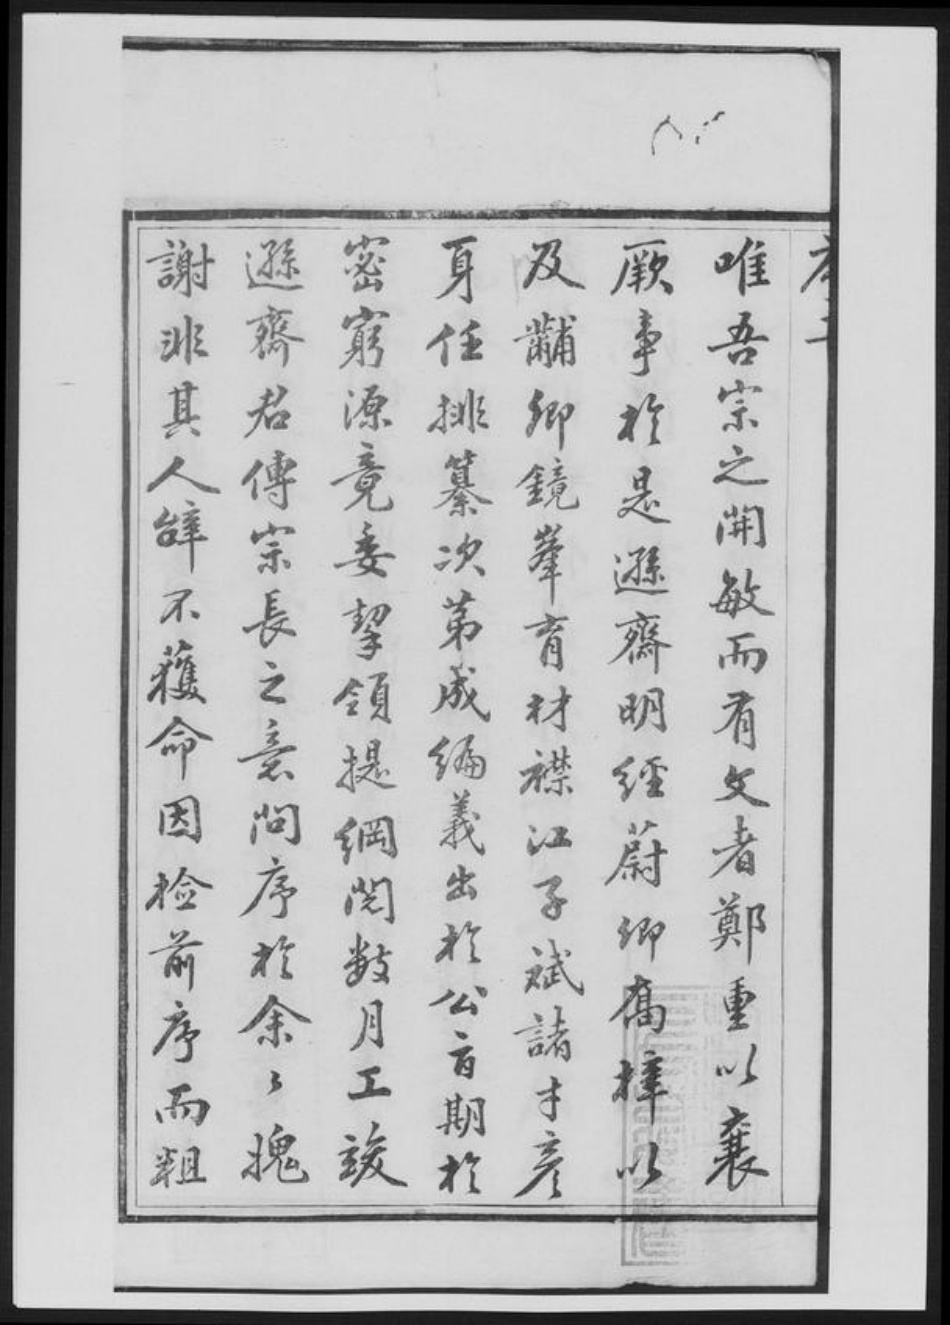 唯吾宗之開敏而有文者鄭重以襄
厥事於是遜齋明經蔚卿舊梓以
及黼卿鏡峯育材襟江子斌諸才彥
身任排纂次第成編義出於公言期於
密窮源竟委挈領提綱閱數月工竣
遜齋君傳宗長之意問序於余々愧
謝非其人辭不獲命因檢前序而粗